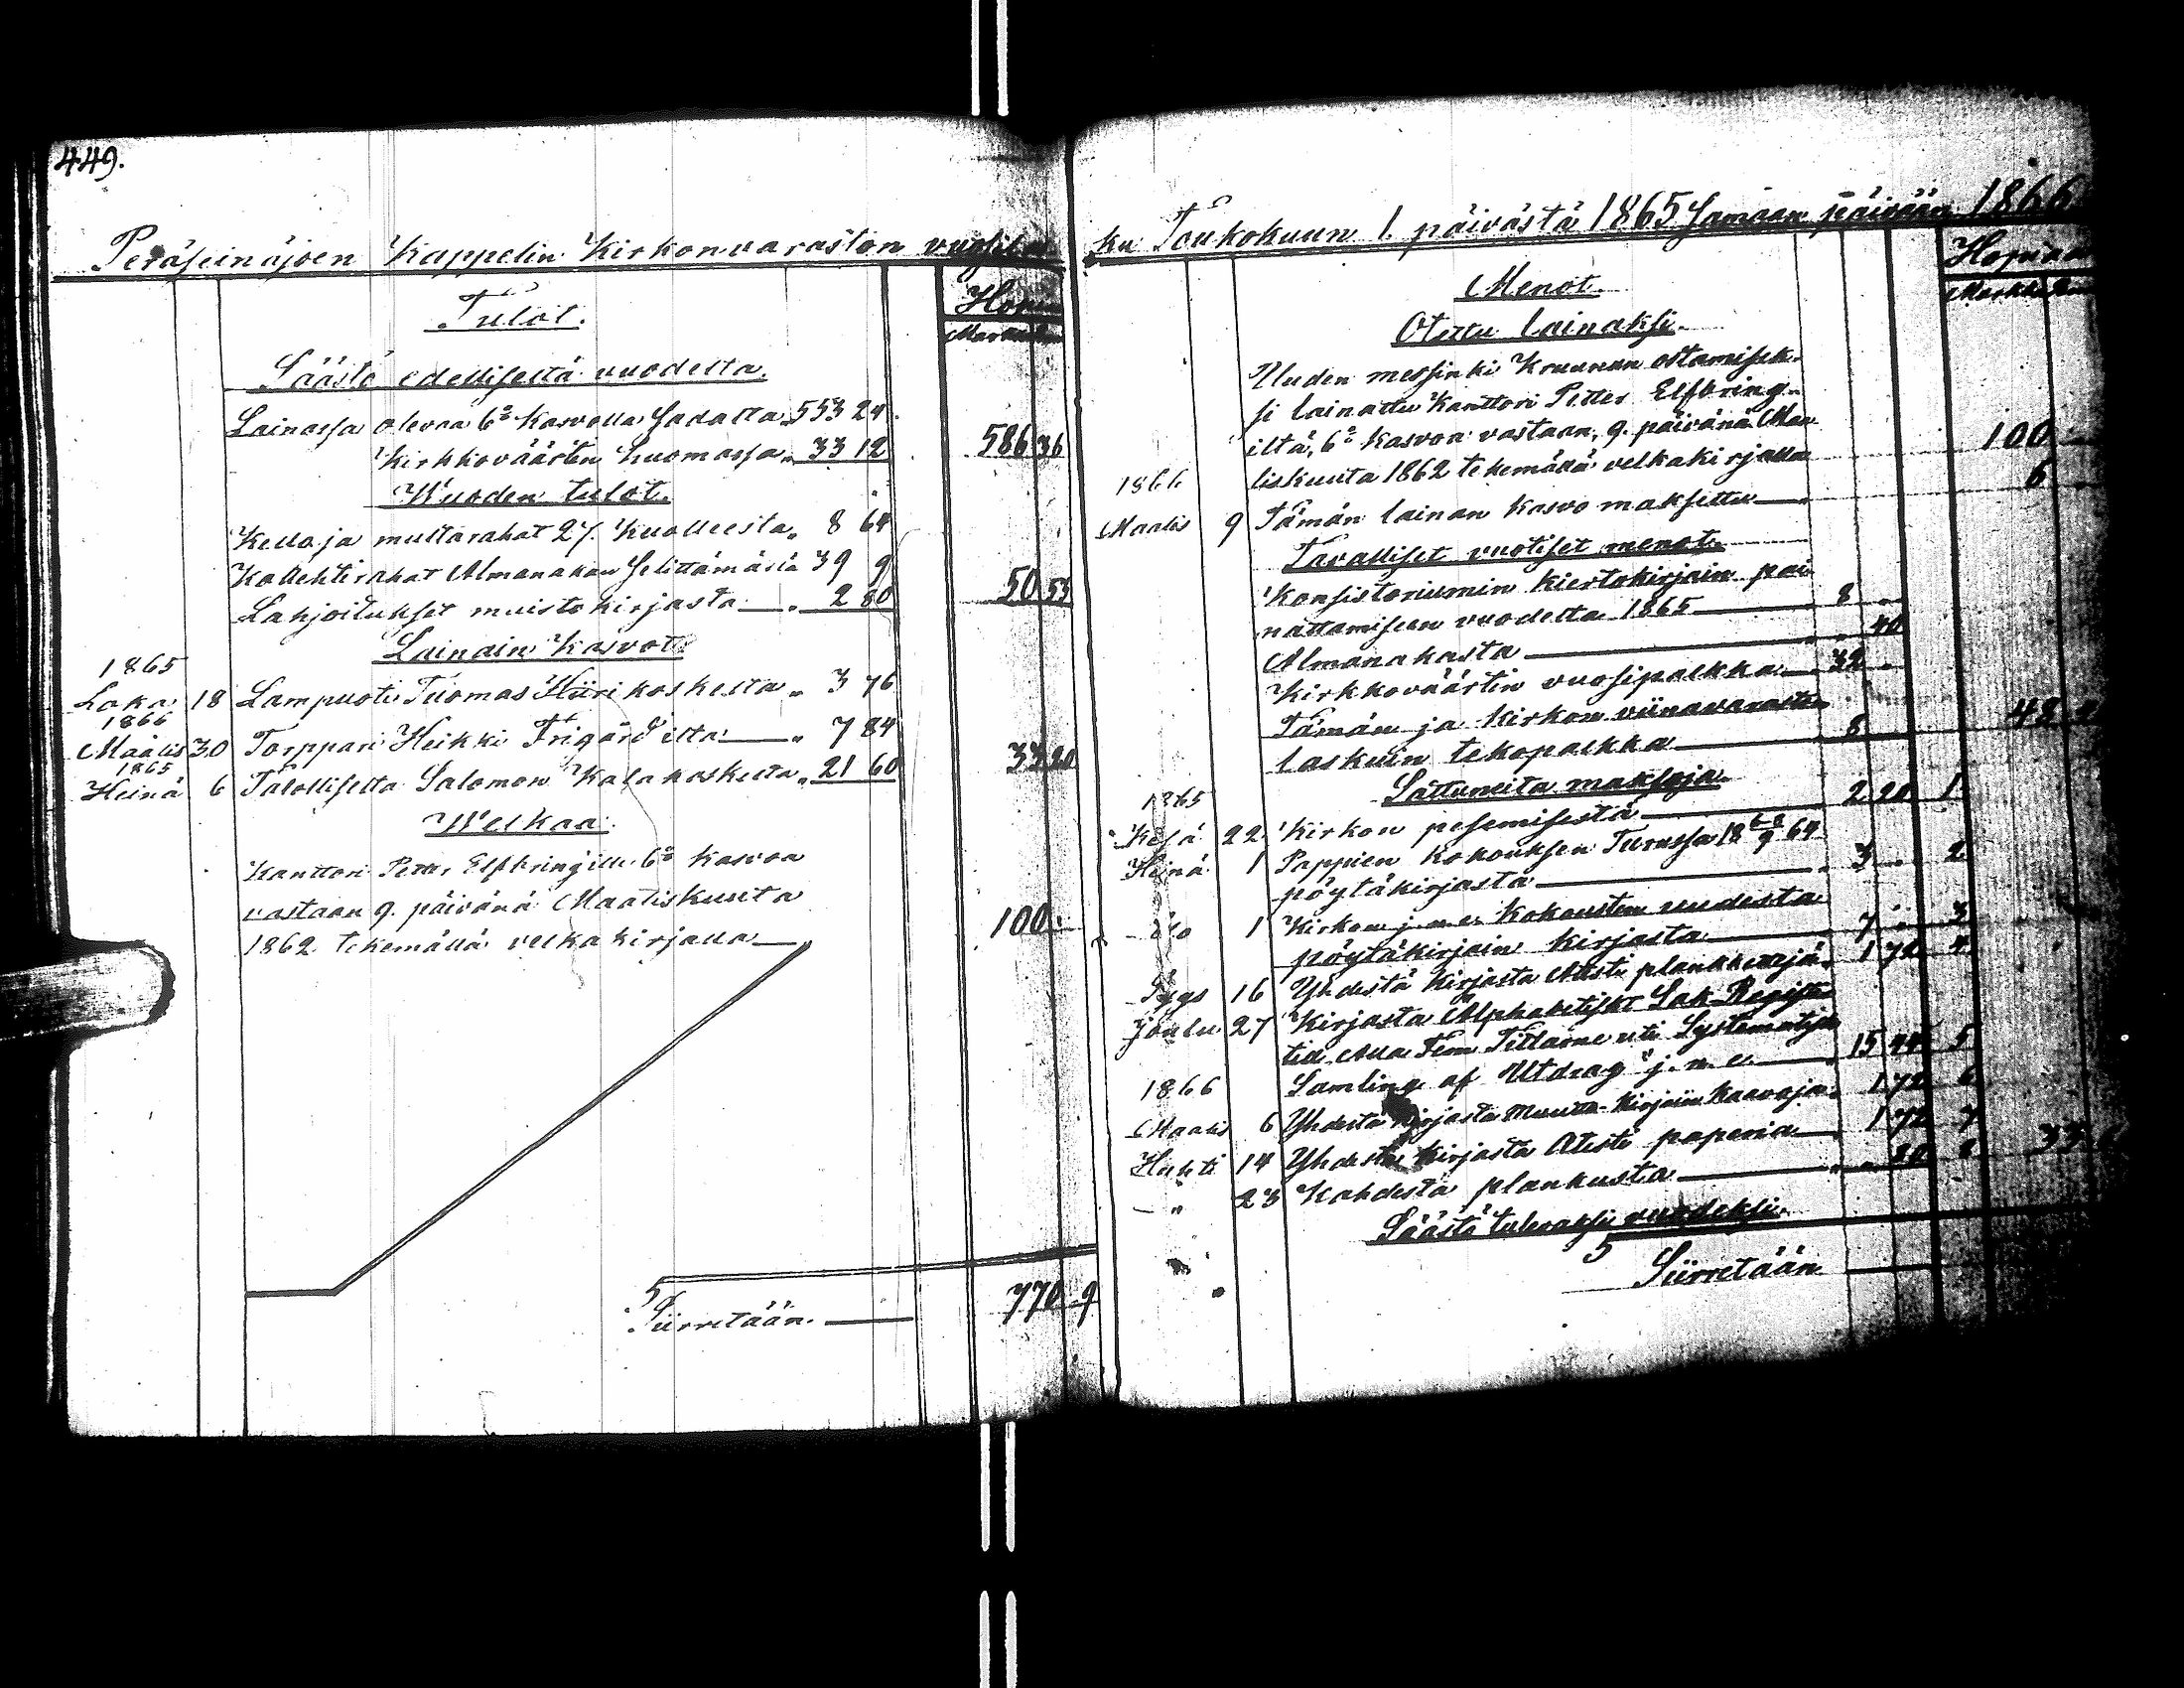 449.
Peräseinäjoen Kappelin Kirkonvaraston vuosilu
Tulot.
Säästö edelliseltä vuodelta.
Lainassa olevaa 6% Kasvolla Sadalta „ 553 24
Kirkkoväärtin huomassa „ 33 12 586 36
Wuoden tulot.
Kello ja multarahat 27. Kuolleesta „ 8 64
Kollehtirahat Almanakan selittämästä 39 9
Lahjoitukset muistokirjasta „ 2 80 50 53
Lainain Kasvot.
1865
Loka 18 Lampuoti Tuomas Hiirikoskelta „ 3 76
1866
Maalis 30 Torppari Heikki Frigårdilta „ 7 84
1865
Heinä 6 Talolliselta Salomon Kalakoskelta „ 21 60 33 20
Welkaa.
Kanttori Petter Elfbringille 6% Kasvoa
vastaan 9. päivänä Maaliskuuta
1862 tekemällä velkakirjalla 100
Siirretään. 770 9
ku Toukokuun 1. päivästä 1865 Samaan päivään 1866
Menot.
Otettu lainaksi.
Uuden messinki Kruunun ostamisek-
si lainattu Kanttori Petter Elfbring-
iltä, 6% Kasvoa vastaan, 9. päivänä Maa-
liskuuta 1862 tekemällä velkakirjalla 100
1866
Maalis 9 Tämän lainan kasvo maksettu 6
Tavalliset vuotiset menot.
Konsistoriumin kiertokirjain pai-
nattamiseen vuodelta 1865 8
Almanakasta „ 40
Kirkkoväärtin vuosipalkka 32
Tämän ja Kirkon viinavaraston
laskuin tekopalkka 8 48
Sattuneita maksoja.
1865
Kesä 22 Kirkon pesemisestä 2 20 1
Heinä 1 Pappien Kokouksen Turussa 18 6-8/9 64
pöytäkirjasta 3 2
dito 1 Kirkon j. n. e. Kokousten uudesta
pöytäkirjain kirjasta 7 3
Syys 16 Yhdestä Kirjasta Atesti plankkeeja 1 72 4
Joulu 27 Kirjasta Alphabetiskt Sak-Register
till Alla Fem Titlarne uti Systematisk
Samling af Utdrag j. n. e. 15 44 5
1866
Maalis 6 Yhdestä Kirjasta Muutto-Kirjain Kaavoja 1 72 6
Huhti 14 Yhdestä Kirjasta Atesti paperia 1 72 7
„ 23 Kahdesta plankusta 20 8 33
Säästö tulevaksi vuodeksi.
Siirretään